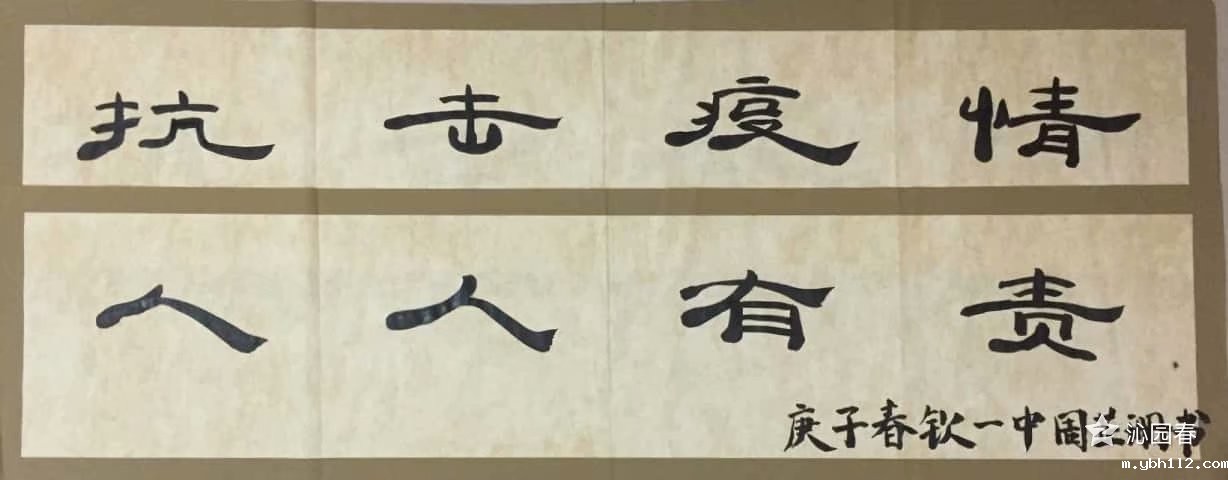 抗击疫情
人人有责
庚子春钦一中周书
沁园春
m.ybh112.com